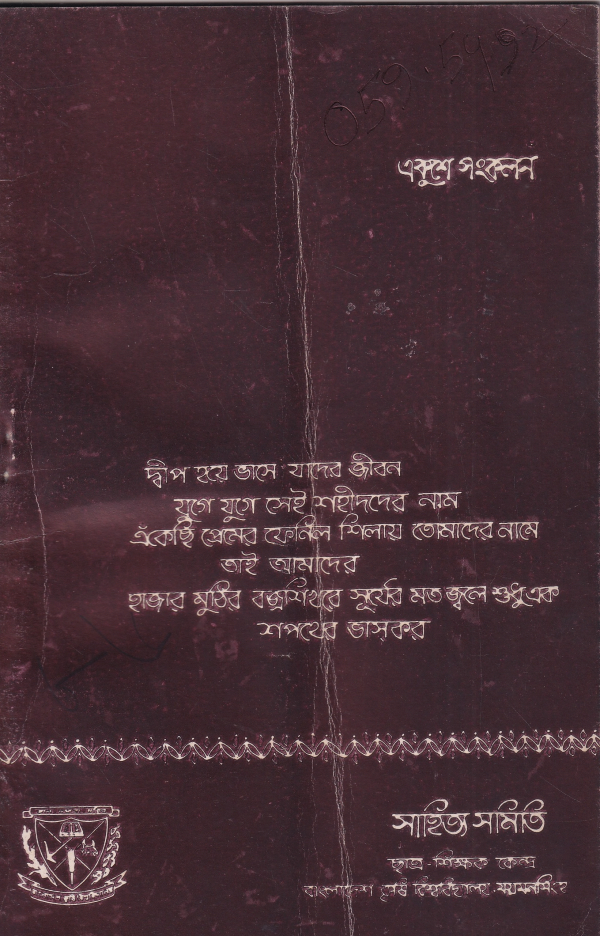 একুশে সংকলন
দ্বীপ হয়ে ভাসে যাদের জীবন
যুগে যুগে সেই শহীদদের নাম
এঁকেছি প্রেমের ফেনিল শিলায় তোমাদের নামে
তাই আমাদের
হাজার মুঠির বজ্রশিখরে সূর্যের মত জ্বলে শুধু এক
শপথের ভাস্কর
সাহিত্য সমিতি
ছাত্র-শিক্ষক কেন্দ্র
বাংলাদেশ কৃষি বিশ্ববিদ্যালয়, ময়মনসিংহ